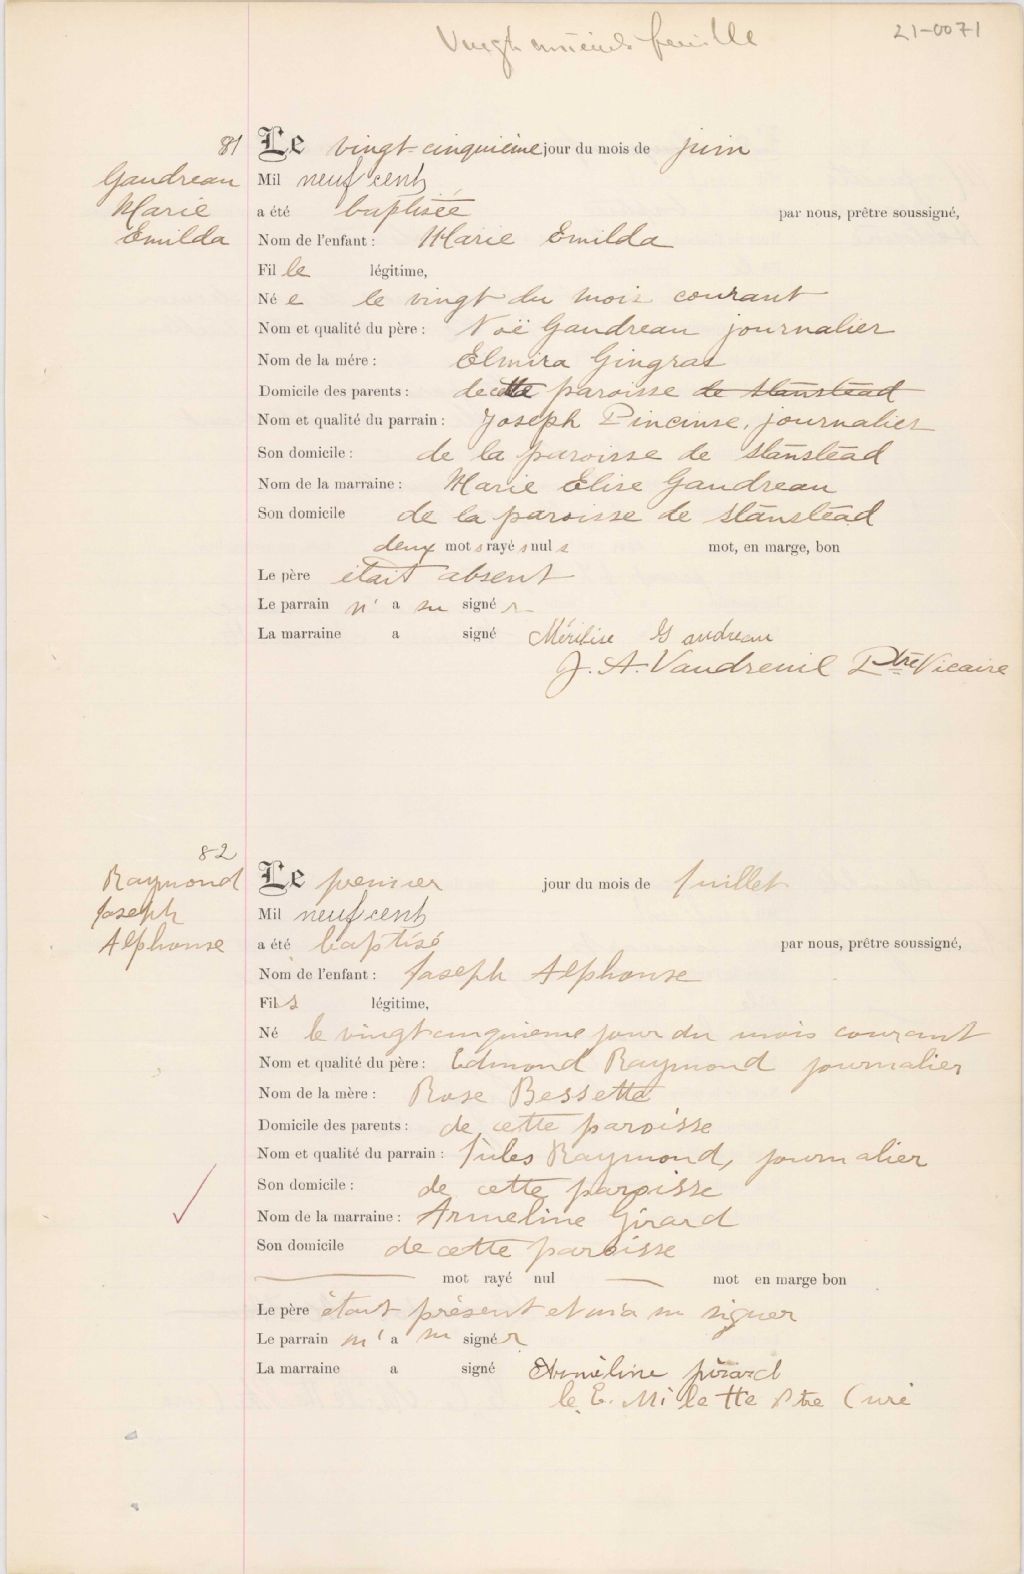 feuille
21-0071
81 Le vingt-cinquième jour du mois de juin
Gaudreau Mil neuf cent
Marie a été baptisée par nous, prêtre soussigné,
Emilda Nom de l'enfant : Marie Emilda
Fil le légitime,
Né e le vingt du mois courant
Nom et qualité du père : Noë Gaudreau journalier
Nom de la mére : Elmira Gingras
Domicile des parents : de cette paroisse de Stanstead
Nom et qualité du parrain : Joseph journalier
Son domicile : de la paroisse de Stanstead
Nom de la marraine : Marie Elise Gaudreau
Son domicile de la paroisse de Stanstead
deux mot s rayé s nul s mot, en marge, bon
Le père était absent
Le parrain n' a su signé r
La marraine a signé Gaudreau
J. A. Vaudreuil Ptre Vicaire
82
Raymond Le premier jour du mois de juillet
Joseph Mil neuf cent
Alphonse a été baptisé par nous, prêtre soussigné,
Nom de l'enfant : Joseph Alphonse
Fil s légitime,
Né le vingt cinquieme jour du mois courant
Nom et qualité du père : Edmond Raymond journalier
Nom de la mère : Rose Bessette
Domicile des parents : de cette paroisse
Nom et qualité du parrain : Jules Raymond, journalier
Son domicile : de cette paroisse
Nom de la marraine : Armeline Girard
Son domicile de cette paroisse
mot rayé nul mot en marge bon
Le père étant présent et n'a su signer
Le parrain n' a su signé r
La marraine a signé Arméline girard
E. Milette Ptre Curé